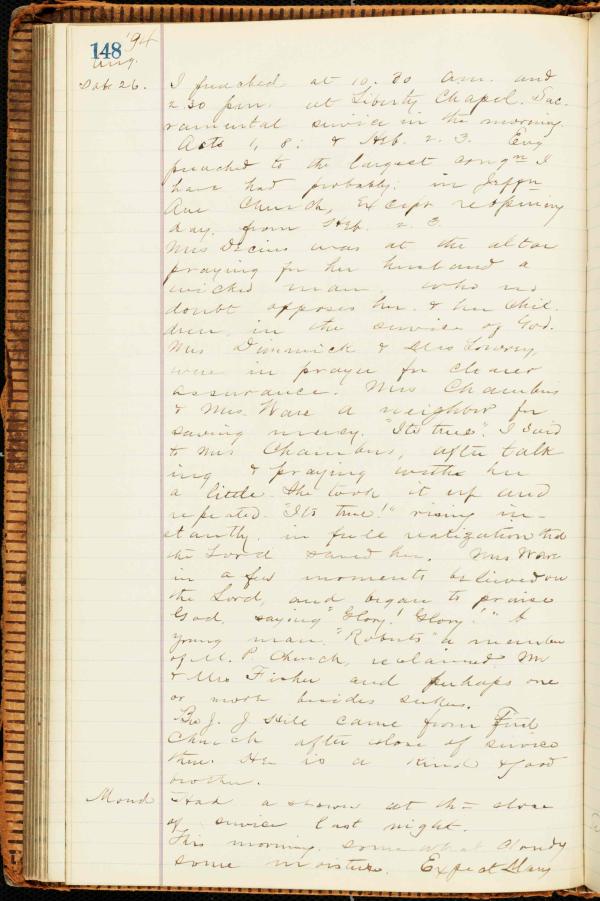 148 '94
Aug.
Sab. 26. I preached at 10.30 a.m. and
2.30 p.m. at Liberty Chapel. Sac-
ramental service in the morning.
Acts 1, 8: & Heb. 2. 3. Eve
preached to the largest congn I
have had probably in Jeffn
Ave Church, Except reopening
day. from Heb. 2. 3.
Mrs Decius was at the altar
praying for her husband a
wicked man, who no
doubt opposes her & her chil-
dren in the service of God.
Mrs Dimmick & Mrs Lowery,
were in prayer for clearer
assurance. Mrs Chambers
& Mrs Ware a neighbor for
saving mercy. "Its true". I said
to Mrs Chambers, after talk
ing & praying with her
a little. She took it up and
repeated "Its true!" rising in-
stantly in full realization that
the Lord saved her. Mrs Ware
in a few moments believed on
the Lord, and began to praise
God, saying "Glory! Glory!" A
young man "Roberts" a member
of M. P. Church, reclaimed. Mr
& Mrs Fisher and perhaps one
or more besides seekers.
Bro J. J. Hill came from
Church after close of service
there. He is a kind & good
brother.
Mond Had a shower at the close
of service last night.
This morning somewhat cloudy
some moisture. Expect Mary